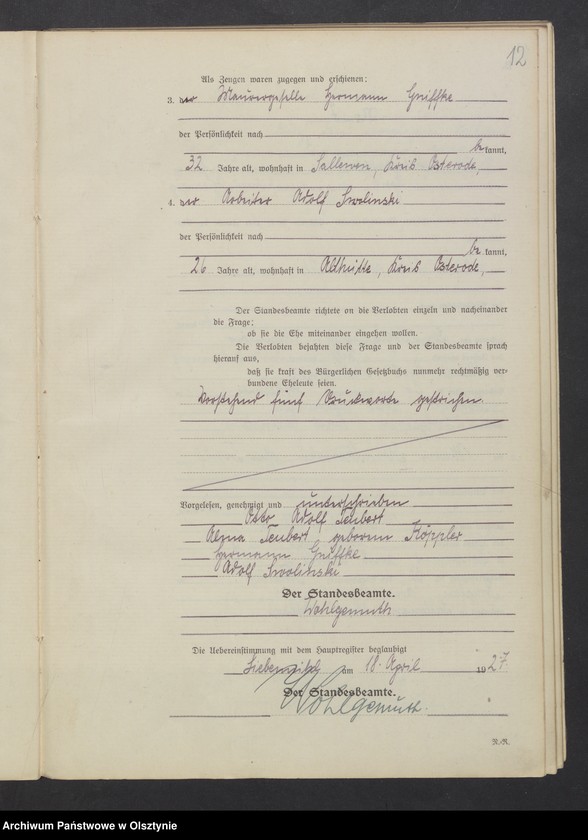 12
Als Zeugen waren zugegen und erschienen:
3. der Maurergeselle Hermann Gniffke
der Persönlichkeit nach
be kannt,
32 Jahre alt, wohnhaft in Sallewen, Kreis Osterode,
4. der Arbeiter Adolf Smolinski
der Persönlichkeit nach
be kannt,
26 Jahre alt, wohnhaft in Althütte, Kreis Osterode,
Der Standesbeamte richtete an die Verlobten einzeln und nacheinander
die Frage:
ob sie die Ehe miteinander eingehen wollen.
Die Verlobten bejahten diese Frage und der Standesbeamte sprach
hierauf aus,
daß sie kraft des Bürgerlichen Gesetzbuchs nunmehr rechtmäßig ver-
bundene Eheleute seien.
Vorstehend fünf Druckworte gestrichen.
Vorgelesen, genehmigt und unterschrieben
Adolf Teubert
Alma Teubert geborene Köppler
Hermann Gniffke
Adolf Smolinski
Der Standesbeamte.
Wohlgemuth
Die Uebereinstimmung mit dem Hauptregister beglaubigt
am 18. April 1927.
Der Standesbeamte.
Wohlgemuth.
R./R.
Archiwum Państwowe w Olsztynie